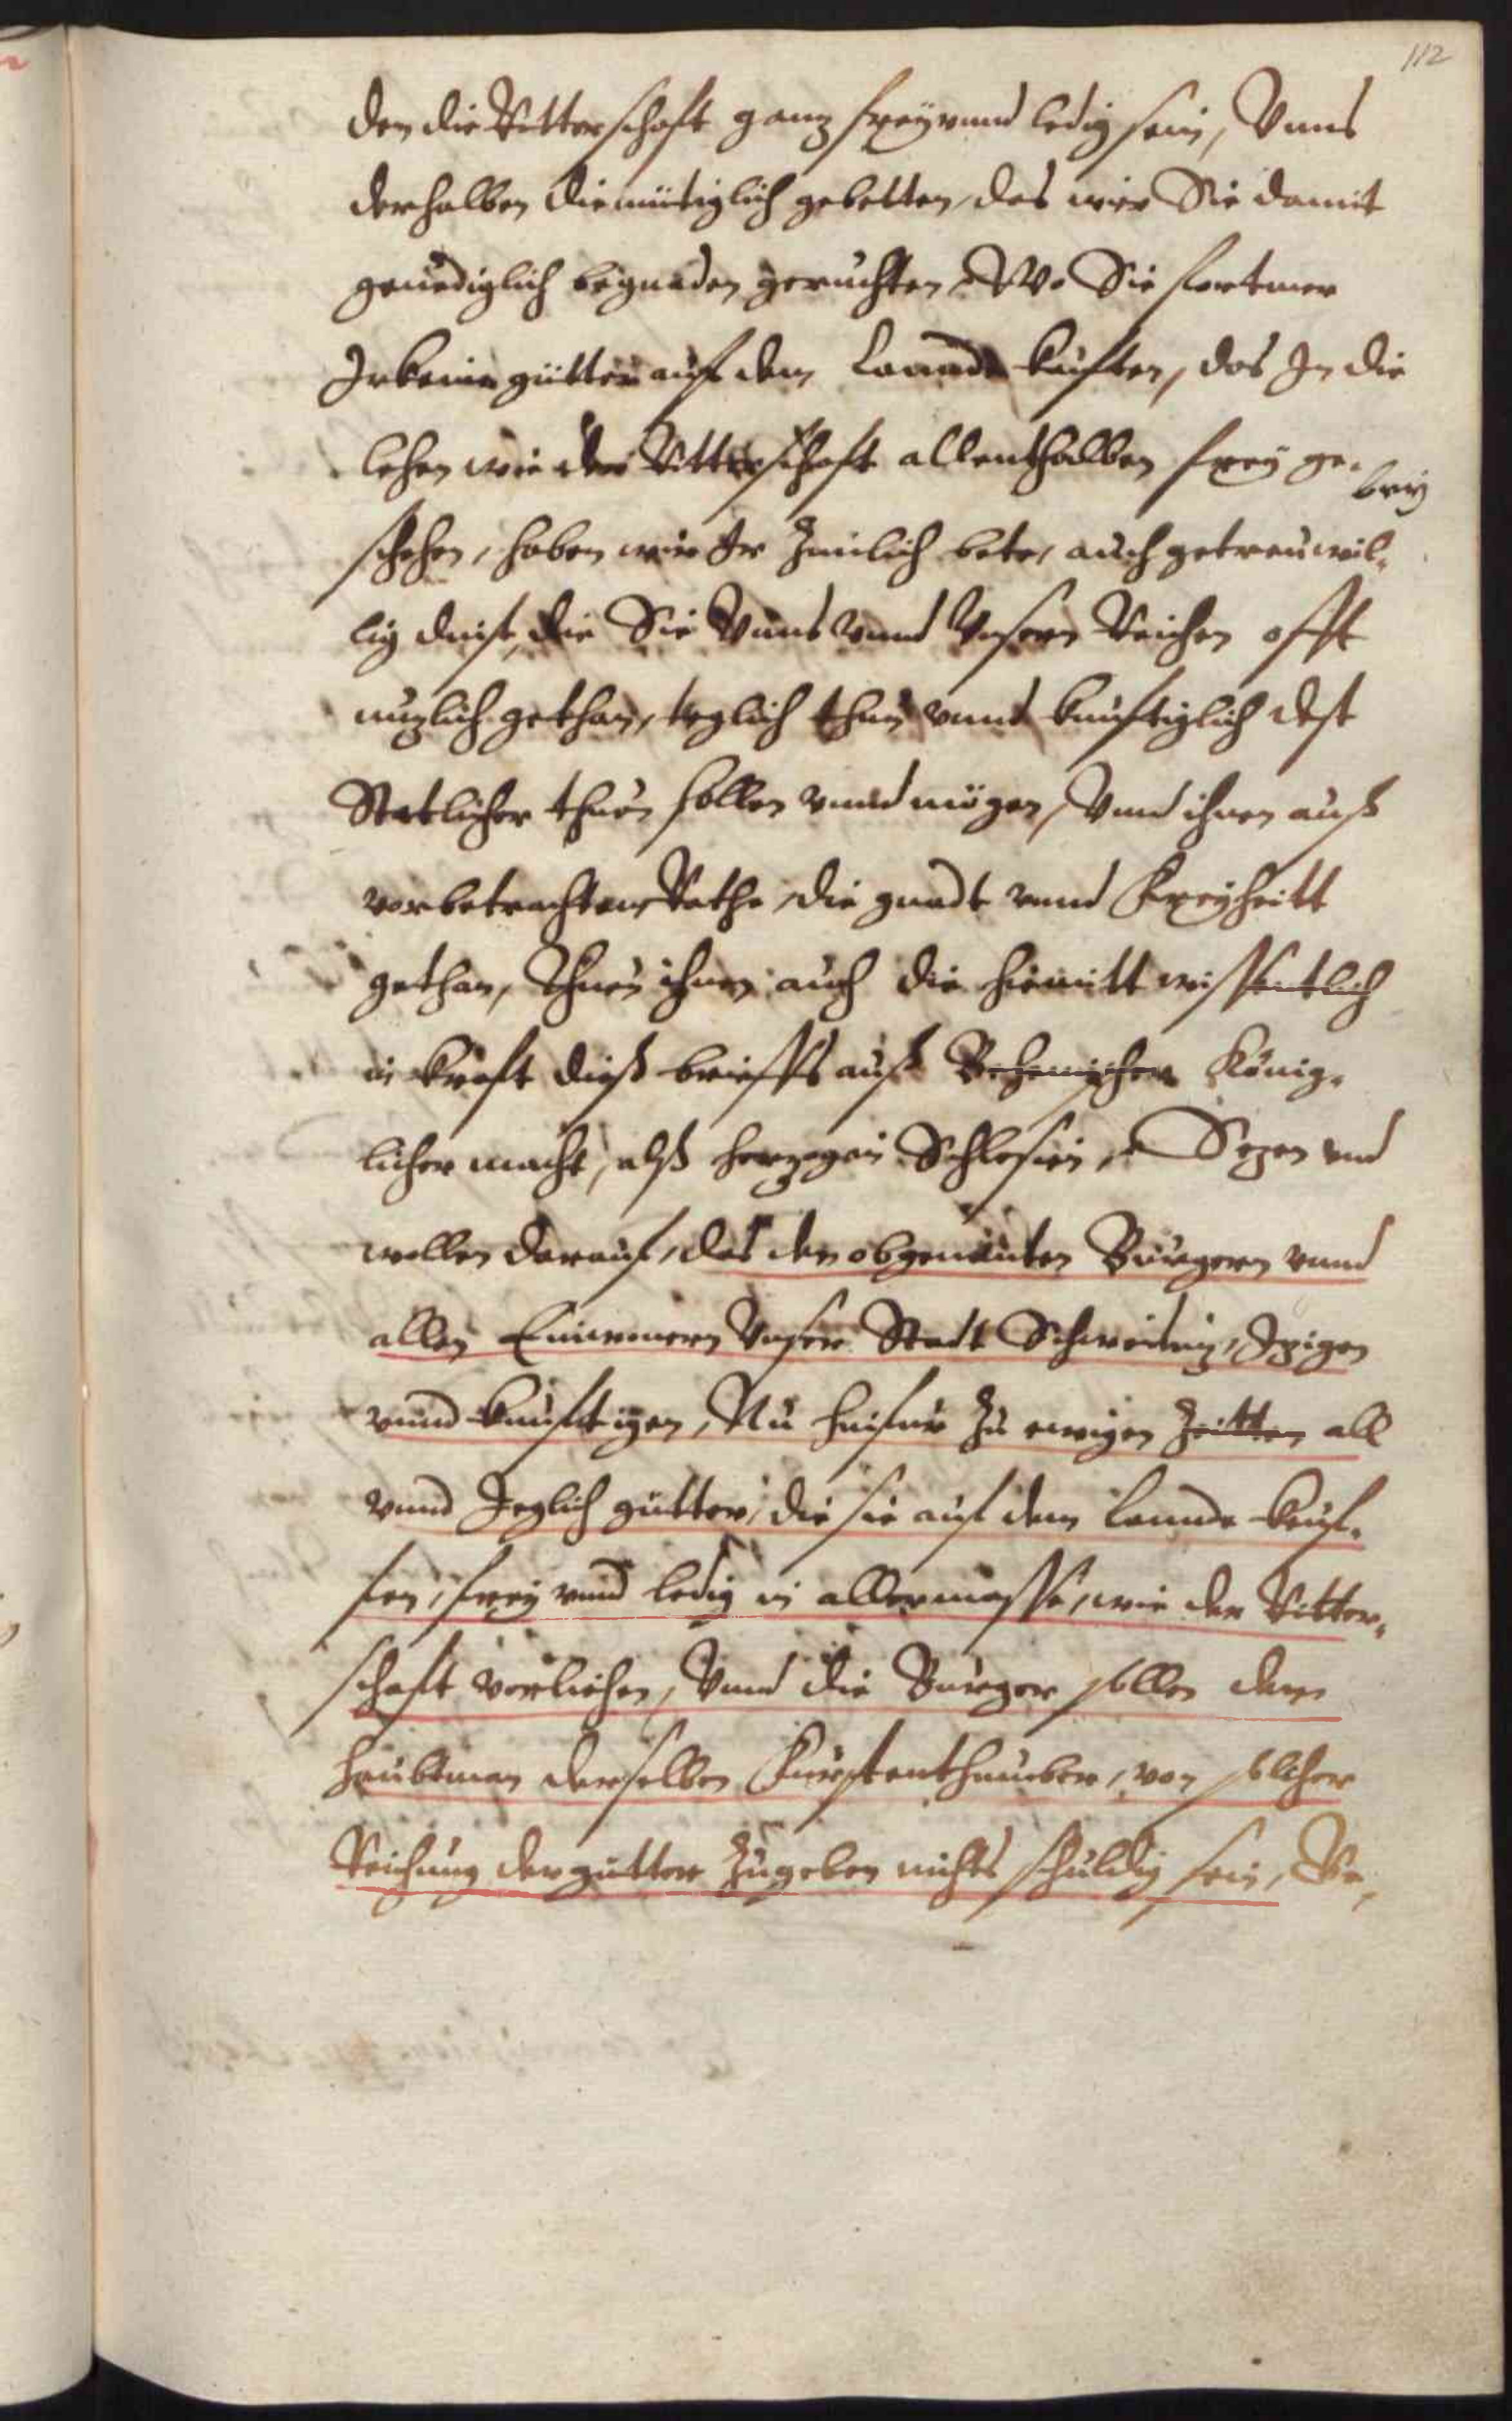 112
den die Ritterschaft ganz freÿ vnnd ledig sein, Vnns
derhalben diemütiglich gebetten, das wir Sie damit
genediglich begnaden geruchten, Wo Sie fortmer
Irkeine gütter auf dem Lannde kauften, das In die
lehen wie der Ritterschaft allenthalben freÿ ge-
schehen, haben wir Ir zimlich bete, auch getreu wil-
lig dinst, die Sie Vnns vnnd Vnsern Reichen offt
nuzlich gethan, teglich thun vnnd kunftiglich dest
Statlicher thuen sollen vnnd mögen, Vnnd ihnen auß
vorbetrachten Rathe, die gnadt vnnd Freÿheitt
gethan, Thuen ihnen auch die hiemitt wissentlich
in kraft dieß briefs auß Behemischer König-
licher macht, alß herzog in Schlesien, Sezen vnd
wollen darauf, das den obgenanten Burgern vnnd
allen Einwonern Vnser Stadt Schweidniz, Izigen
vnnd kunftigen, Nu hinfur zu ewigen Zeitten all
vnnd Jeglich gütter, die sie auf dem Lannde keuf-
fen, freÿ vnnd ledig in allermasse, wie der Ritter-
schaft verliehen, Vnnd die Burger sollen dem
haubtman derselben Furstenthumber, von solcher
Reichung der gutter zugeben nichts schuldig sein, Be-